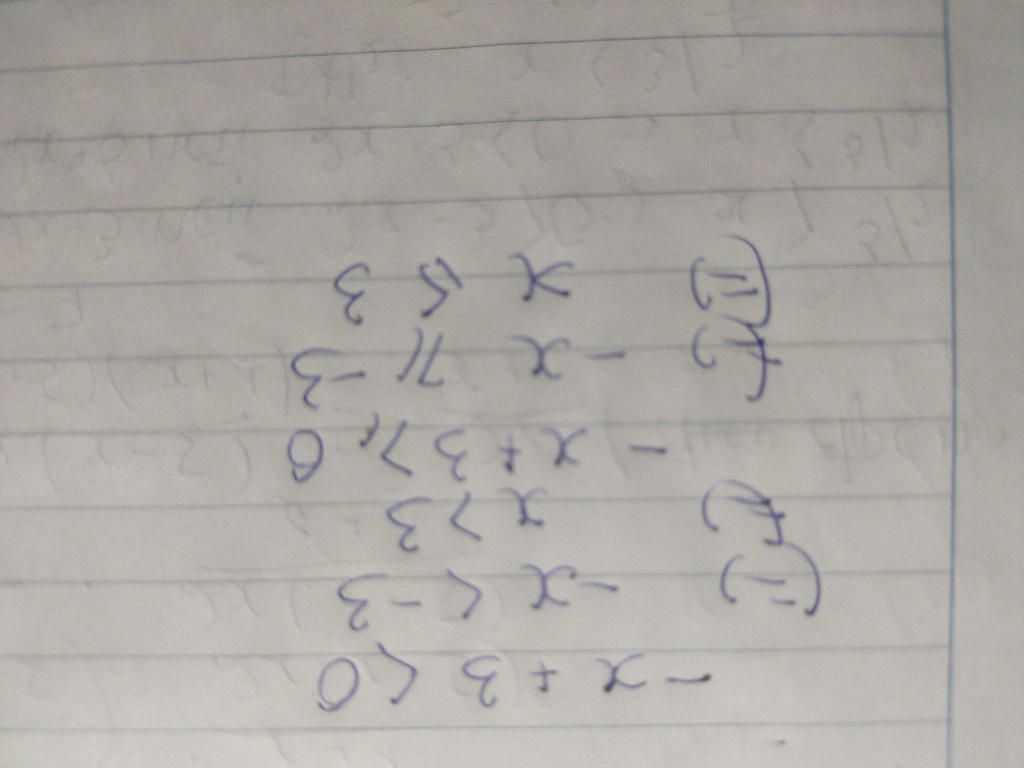 -x + 3 < 0
(=) -x < -3
(=) x > 3
-x + 3 ≥ 0
(=) -x ≥ -3
(=) x ≤ 3